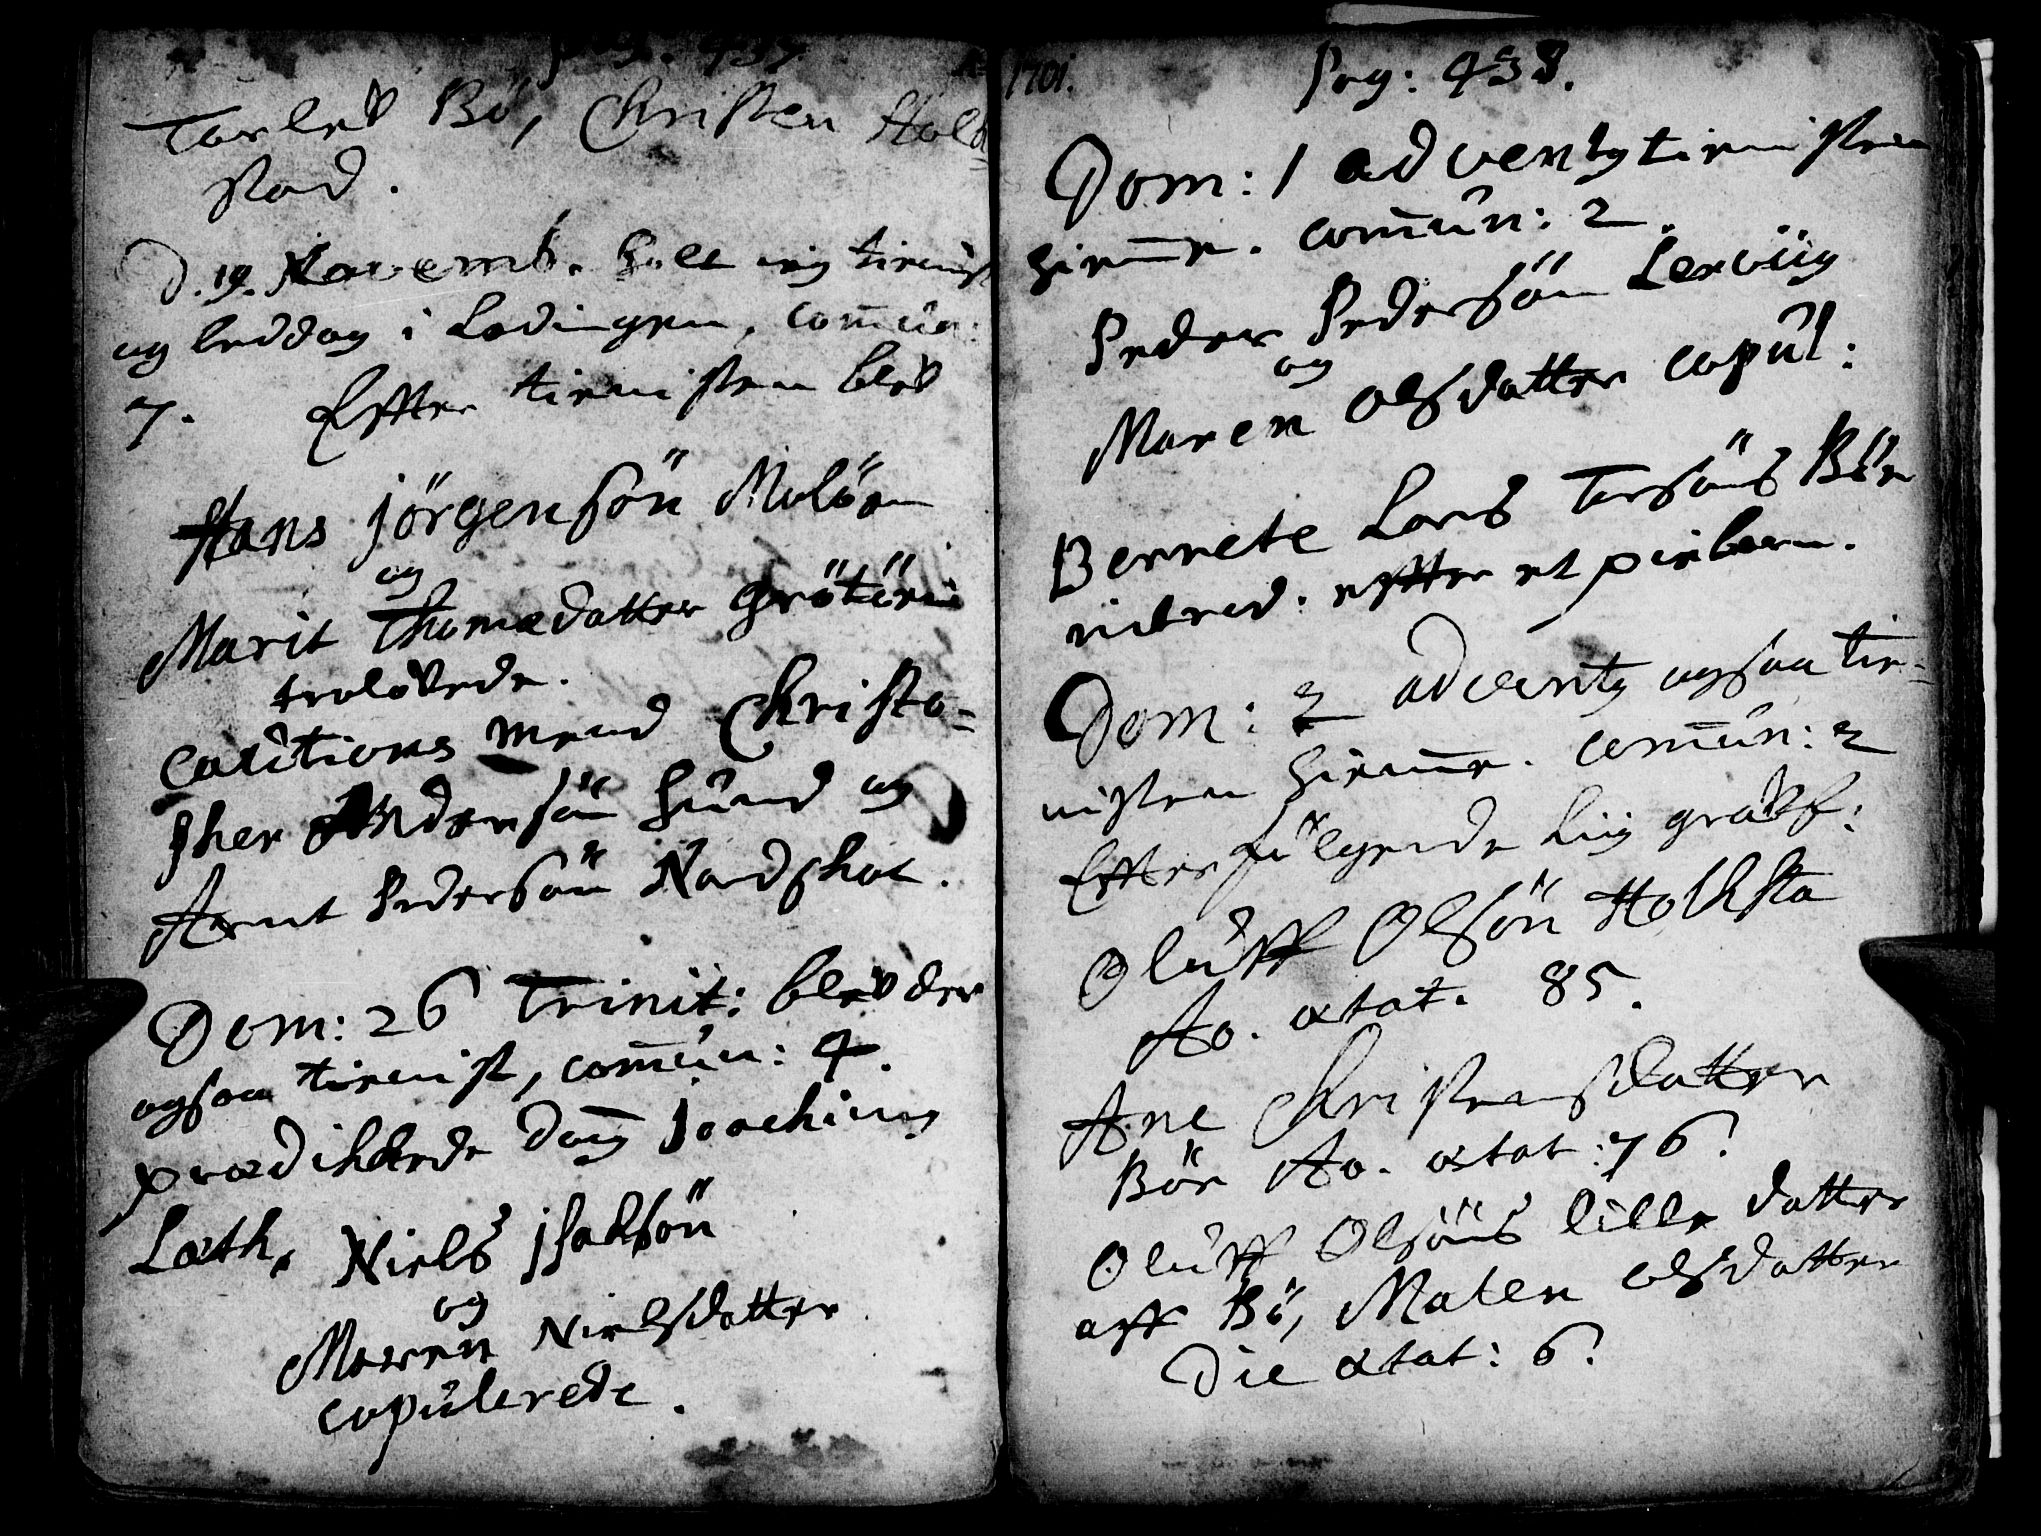 pag: 437.
Torlef Bö, Christen Hold-
stad.
D. 19. Novemb. holt ieg tienist
og beddag i Lödingen, com̄un:
7. Effter tienisten blef
Hans Jörgensön Molöen
og
Marit Thomædatter Grötöen
trolofvede.
Cautions mend Christo-
pher Andersön Hund og
Arnt Pedersön Nordschot.
Dom: 26 Trinit: blef der
ogsaa tienist, com̄un: 4.
prædikede dog Joachimus
Lath. Niels Jsachsön
og
Maren Nielsdatter
copulerede.
Ao 1701.
Pag: 438.
Dom: 1 adventus tienisten
hiem̄e. com̄un: 2.
Peder Pedersön Lervüg
og
Maren Olsdatter copul:
Bernete Lars Torsöns Böe
introd: effter et piebarn.
Dom: 2 adventus ogsaa tie-
nisten hiem̄e. com̄un: 2
Effterfölgende Liig grafv:
Oluff Olsön Holchsta
Ao. ætat. 85.
Ane Christensdatter
Böe Ao. ætat: 76.
Oluff Olsöns lille datter
aff Bö, Malen Olsdatter
Die ætat: 6.